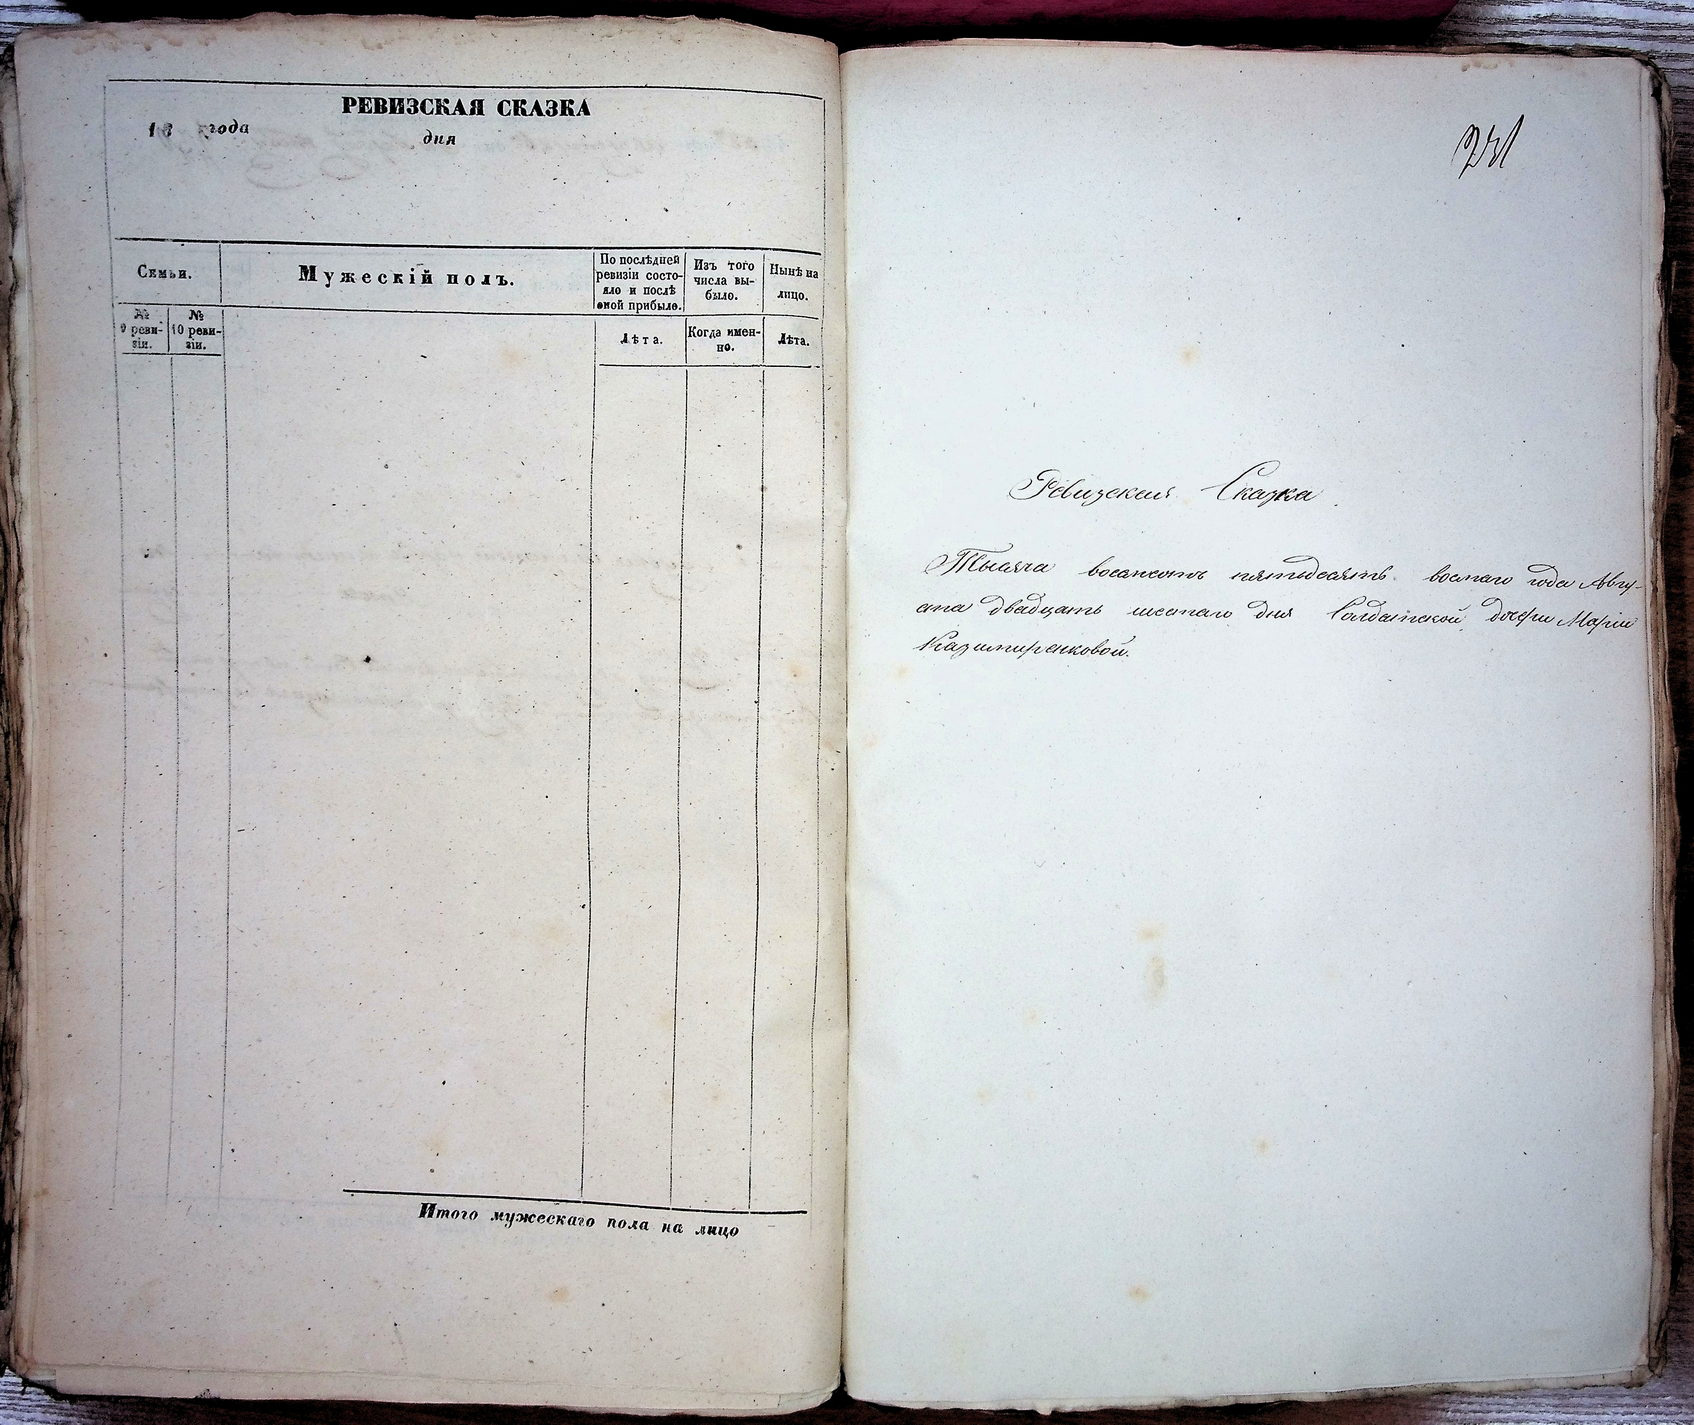 РЕВИЗСКАЯ СКАЗКА
18 года
дня
Семьи.
Мужескій полъ.
По послѣдней
ревизіи состо-
яло и послѣ
оной прибыло.
Изъ того
числа вы-
было.
Нынѣ на
лицо.
№
9 реви-
зіи.
№
10 реви-
зіи.
Лѣта.
Когда имен-
но.
Лѣта.
Итого мужескаго пола на лицо
231
Ревизская Сказка
Тысяча восемсотъ пятьдесятъ восмаго года Авгу-
ста двадцать шестаго дня Солдатской дочери Маріи
Казимиренковой.